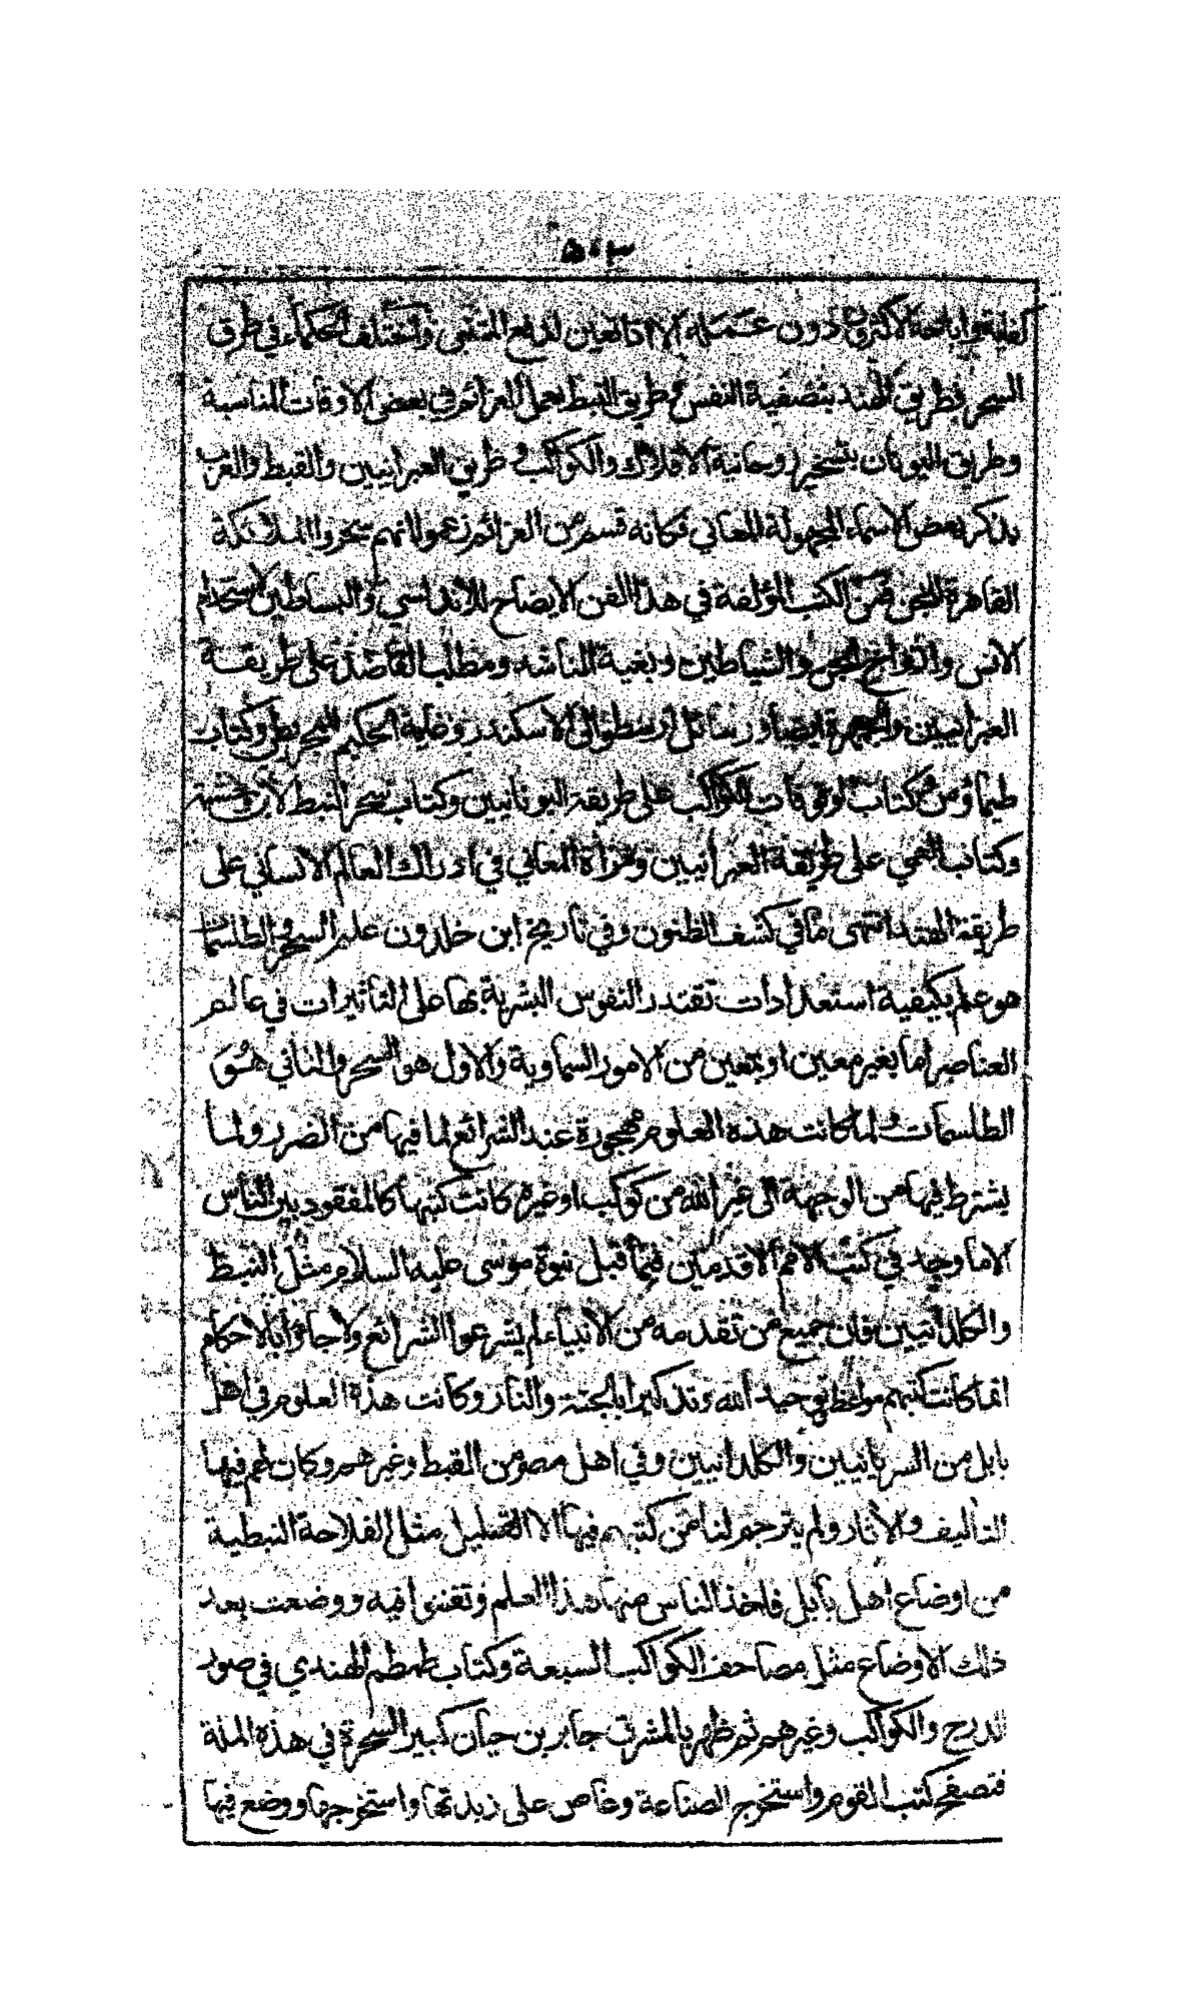 ٥٠٣
كفاية واباحه الأكثرون دون عمله الا اذا تعين لدفع المتنبي واختلف الحكماء في طرق
السحر فطريق الهند بتصفية النفس وطريق النبط بعمل العزائم في بعض الاوقات المناسبة
وطريق اليونان بتسخير روحانية الافلاك والكواكب وطريق العبرانيين والقبط والعرب
بذكر بعض الاسماء المجهولة المعاني فكانه قسم من العزائم زعموا انهم سخروا الملائكة
القاهرة للجن فمن الكتب المؤلفة في هذا الفن الايضاح للأندلسي والبساطين لاستخدام
الانس وارواح الجن والشياطين وبغية الناشد ومطلب القاصد على طريقة
العبرانيين والجمهرة ايضا ورسائل ارسطو الى الاسكندر وغاية الحكيم للمجريطي وكتاب
طيماؤس وكتاب الوقوفات للكواكب على طريقة اليونانيين وكتاب سحر النبط لابن وحشية
وكتاب العمي على طريقة العبرانيين ومرآة المعاني في ادراك العالم الانساني على
طريقة الهند انتهى ما في كشف الظنون وفي تاريخ ابن خلدون علم السحر والطلسمات
هو علم بكيفية استعدادات تقتدر النفوس البشرية بها على التاثيرات في عالم
العناصر اما بغير معين او بمعين من الامور السماوية والاول هو السحر والثاني هُوَ
الطلسمات ولما كانت هذه العلوم مهجورة عند الشرائع لما فيها من الضرر ولما
يشترط فيها من الوجهة الى غير الله من كوكب او غيره كانت كتبها كالمفقود بين الناس
الا ما وجد في كتب الامم الاقدمين فيما قبل نبوة موسى عليه السلام مثل النبط
والكلدانيين فان جميع من تقدمه من الانبياء لم يشرعوا الشرائع ولا جاؤا بالاحكام
انما كانت كتبهم مواعظ وتوحيد الله وتذكيرا بالجنة والنار وكانت هذه العلوم في اهل
بابل من السريانيين والكلدانيين وفي اهل مصر من القبط وغيرهم وكان لهم فيها
التاليف والاثار ولم يترجم لنا من كتبهم فيها الا القليل مثل الفلاحة النبطية
من اوضاع اهل بابل فاخذ الناس منها هذا العلم وتفننوا فيه ووضعت بعد
ذلك الاوضاع مثل مصاحف الكواكب السبعة وكتاب طمطم الهندي في صور
الدرج والكواكب وغيرهم ثم ظهر بالمشرق جابر بن حيان كبير السحرة في هذه الملة
فتصفح كتب القوم واستخرج الصناعة وغاص على زبدتها واستخرجها ووضع فيها